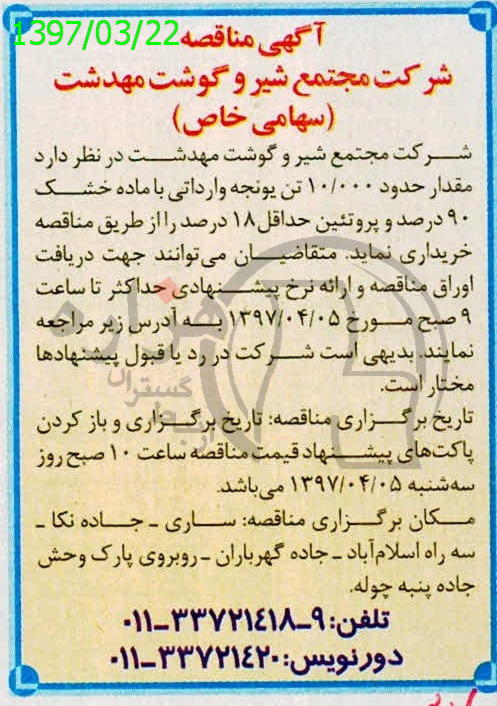 1397/03/22
آگهی مناقصه
شرکت مجتمع شیر و گوشت مهدشت
(سهامی خاص)
شرکت مجتمع شیر و گوشت مهدشت در نظر دارد
مقدار حدود ۱۰/۰۰۰ تن یونجه وارداتی با ماده خشک
۹۰ درصد و پروتئین حداقل ۱۸ درصد را از طریق مناقصه
خریداری نماید. متقاضیان می‌توانند جهت دریافت
اوراق مناقصه و ارائه نرخ پیشنهادی حداکثر تا ساعت
۹ صبح مورخ ۱۳۹۷/۰۴/۰۵ به آدرس زیر مراجعه
نمایند. بدیهی است شرکت در رد یا قبول پیشنهادها
مختار است.
تاریخ برگزاری مناقصه: تاریخ برگزاری و باز کردن
پاکت‌های پیشنهاد قیمت مناقصه ساعت ۱۰ صبح روز
سه‌شنبه ۱۳۹۷/۰۴/۰۵ می‌باشد.
مکان برگزاری مناقصه: ساری ـ جاده نکا ـ
سه راه اسلام‌آباد ـ جاده گهرباران ـ روبروی پارک وحش
جاده پنبه چوله.
تلفن: ۹ـ۰۱۱ـ۳۳۷۲۱۴۱۸
دورنویس: ۰۱۱ـ۳۳۷۲۱۴۲۰
هزاره
گستران